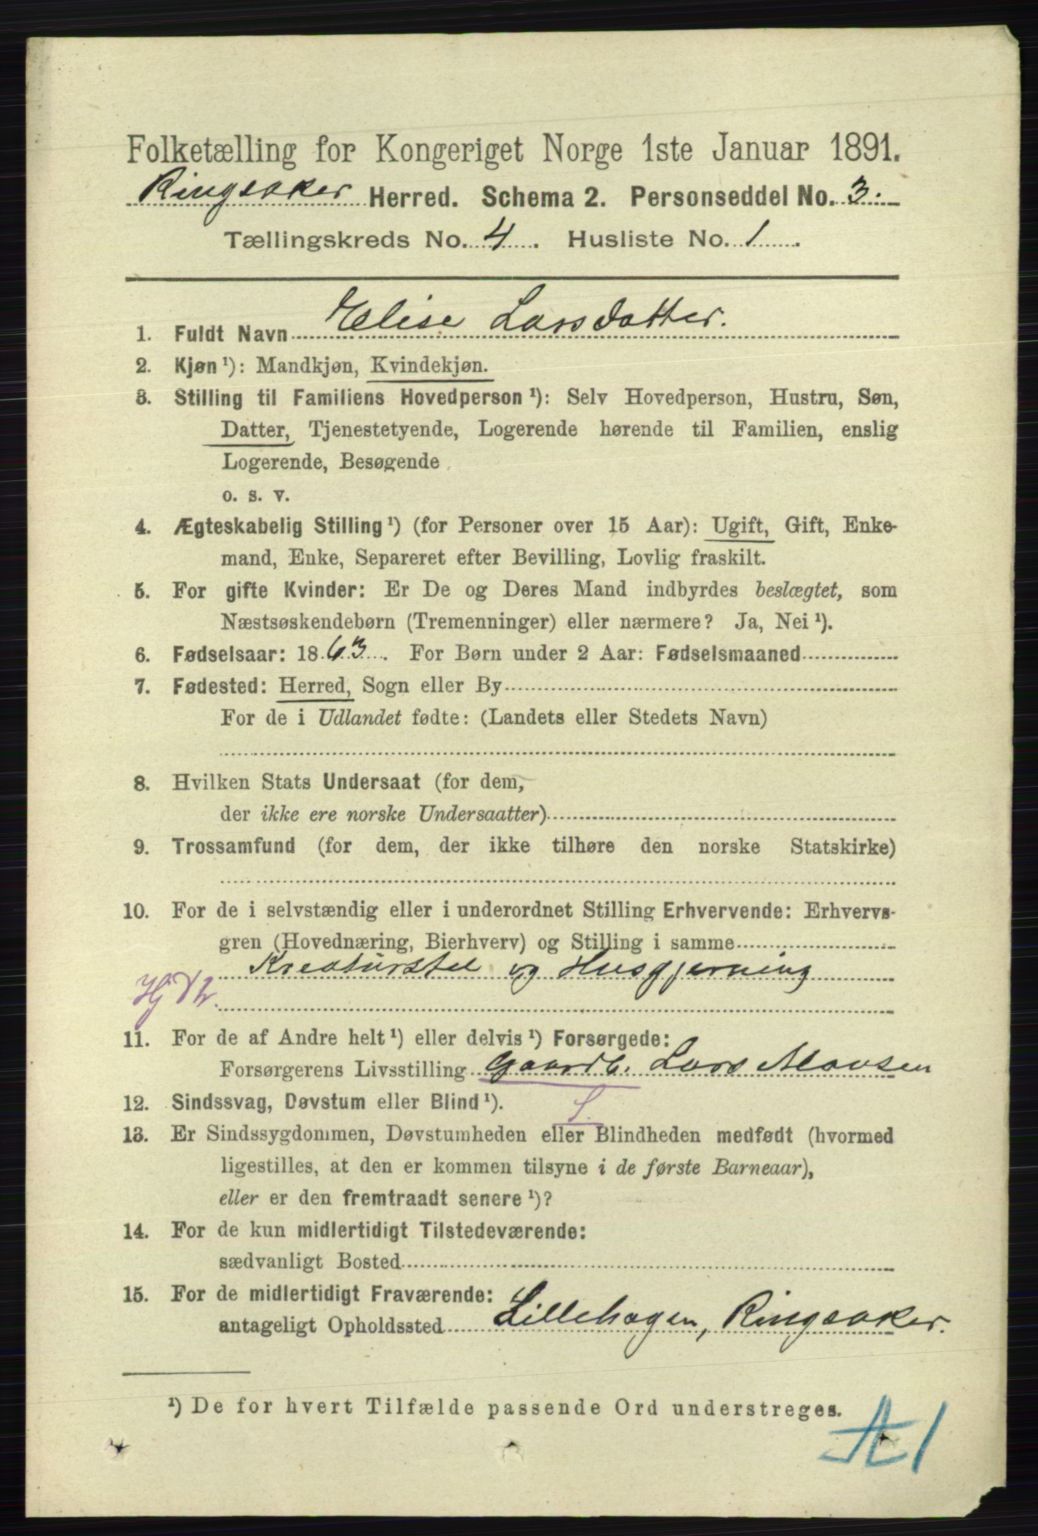 Folketælling for Kongeriget Norge 1ste Januar 1891.
Ringsaker Herred. Schema 2. Personseddel No. 3.
Tællingskreds No. 4. Husliste No. 1.
1. Fuldt Navn Elise Larsdatter.
2. Kjøn ¹): Mandkjøn, Kvindekjøn.
3. Stilling til Familiens Hovedperson ¹): Selv Hovedperson, Hustru, Søn,
Datter, Tjenestetyende, Logerende hørende til Familien, enslig
Logerende, Besøgende
o. s. v.
4. Ægteskabelig Stilling ¹) (for Personer over 15 Aar): Ugift, Gift, Enke-
mand, Enke, Separeret efter Bevilling, Lovlig fraskilt.
5. For gifte Kvinder: Er De og Deres Mand indbyrdes beslægtet, som
Næstsøskendebørn (Tremenninger) eller nærmere? Ja, Nei ¹).
6. Fødselsaar: 1863. For Børn under 2 Aar: Fødselsmaaned
7. Fødested: Herred, Sogn eller By
For de i Udlandet fødte: (Landets eller Stedets Navn)
8. Hvilken Stats Undersaat (for dem,
der ikke ere norske Undersaatter)
9. Trossamfund (for dem, der ikke tilhøre den norske Statskirke)
10. For de i selvstændig eller i underordnet Stilling Erhvervende: Erhvervs-
gren (Hovednæring, Bierhverv) og Stilling i samme
Kreaturstel og Husgjerning
11. For de af Andre helt ¹) eller delvis ¹) Forsørgede:
Forsørgerens Livsstilling Gaardb. Lars
12. Sindssvag, Døvstum eller Blind ¹). S.
13. Er Sindssygdommen, Døvstumheden eller Blindheden medfødt (hvormed
ligestilles, at den er kommen tilsyne i de første Barneaar),
eller er den fremtraadt senere ¹)?
14. For de kun midlertidigt Tilstedeværende:
sædvanligt Bosted
15. For de midlertidigt Fraværende:
antageligt Opholdssted Lillehagen, Ringsaker.
¹) De for hvert Tilfælde passende Ord understreges.